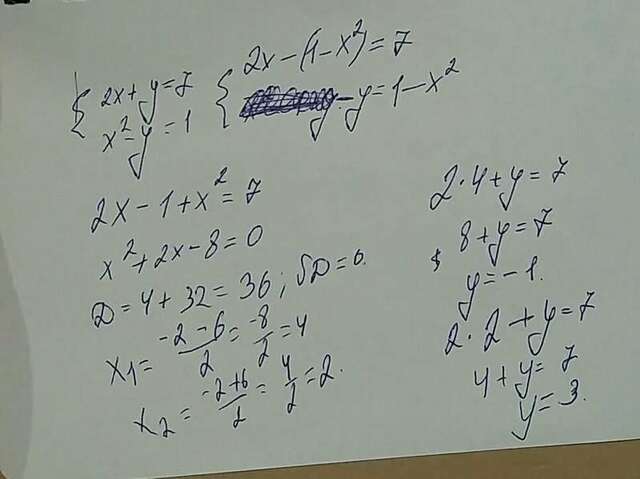 { 2x + y = 7
x² - y = 1
{ 2x - (1 - x²) = 7
- y = 1 - x²
2x - 1 + x² = 7
x² + 2x - 8 = 0
D = 4 + 32 = 36; √D = 6.
x₁ = (-2 - 6)/2 = -8/2 = 4
x₂ = (-2 + 6)/2 = 4/2 = 2.
2 · 4 + y = 7
8 + y = 7
y = -1.
2 · 2 + y = 7
4 + y = 7
y = 3.